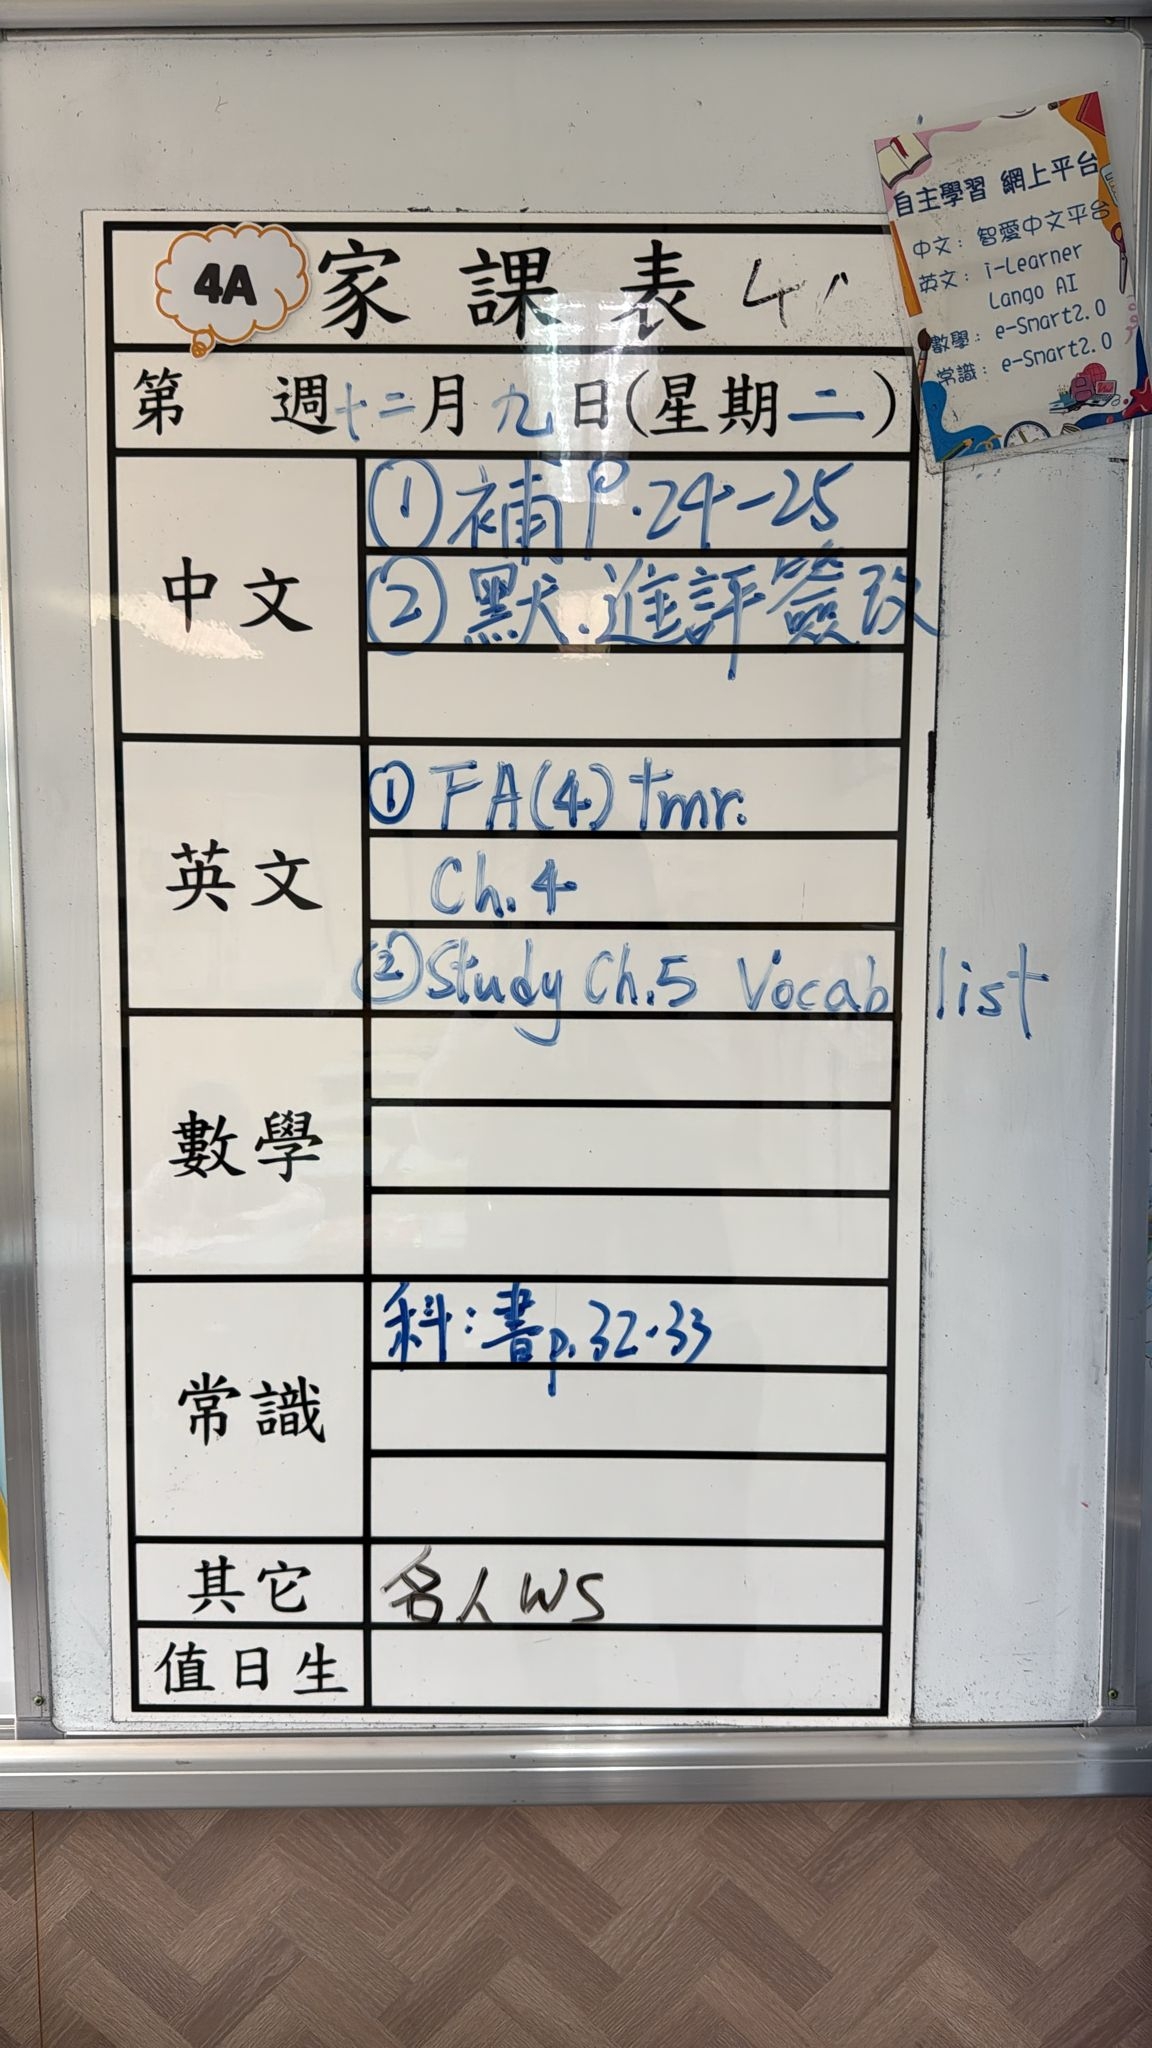 4A 家課表
第 週十二月九日(星期二)
中文
①補P.24-25
②默.進評簽改
英文
①FA(4) tmr.
Ch.4
②Study Ch.5 Vocab list
數學
常識
科:書p.32.33
其它
名人WS
值日生
自主學習 網上平台
中文: 智愛中文平台
英文: i-Learner
Lango AI
數學: e-Smart2.0
常識: e-Smart2.0